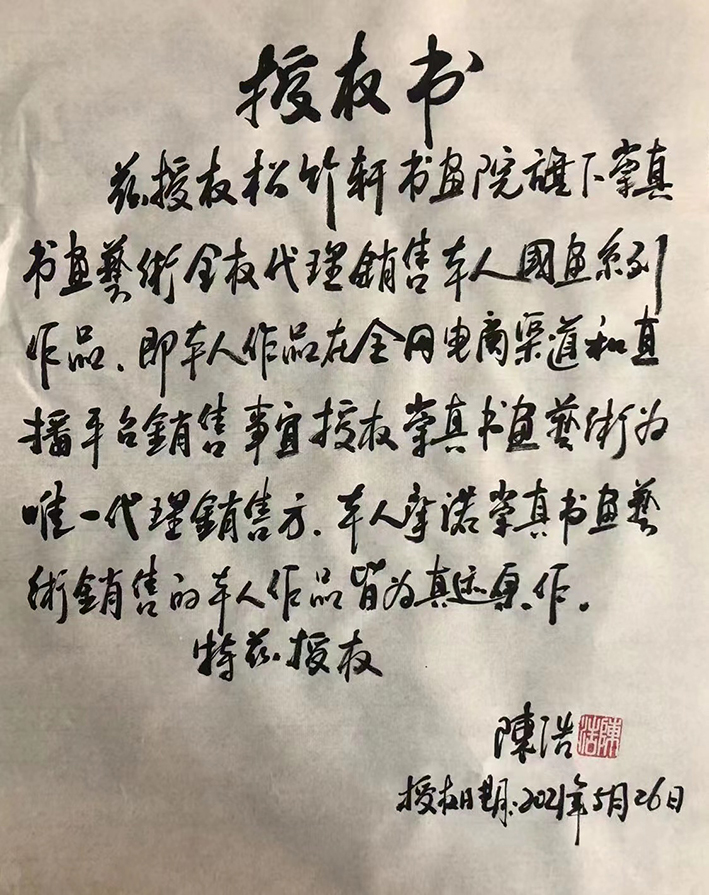 授权书
兹授权松竹轩书画院旗下崇真
书画藝術全权代理銷售本人國画系列
作品、即本人作品在全网电商渠道和直
播平台銷售事宜授权崇真书画藝術为
唯一代理銷售方、本人承诺崇真书画藝
術銷售的本人作品皆为真迹原作。
特兹授权
陳浩 陳浩
授权日期:2021年5月26日